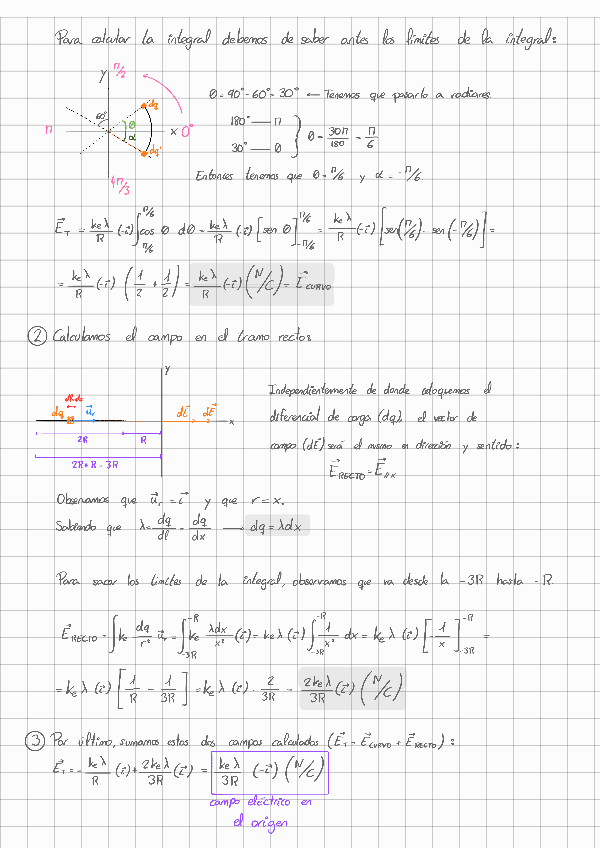 Para calcular la integral debemos de saber antes los límites de la integral:
y π/2
dq
60° θ
π α x 0°
dq'
4π/3
θ = 90° - 60° = 30° ← Tenemos que pasarlo a radianes.
180° — π
30° — θ } θ = 30π/180 = π/6
Entonces tenemos que θ = π/6 y α = -π/6.
E⃗_T = k_e λ/R (-i⃗) ∫_{π/6}^{π/6} cos θ dθ = k_e λ/R (-i⃗) [sen θ]_{-π/6}^{π/6} = k_e λ/R (-i⃗) [sen(π/6) - sen(-π/6)] =
= k_e λ/R (-i⃗) (1/2 + 1/2) = k_e λ/R (-i⃗) (N/C) = E⃗_CURVO
② Calculamos el campo en el tramo recto:
y
dl=dx
dq u⃗_r dE⃗ dE⃗ x
2R R
2R+R = 3R
Independientemente de donde coloquemos el
diferencial de carga (dq), el vector de
campo (dE⃗) será el mismo en dirección y sentido:
E⃗_RECTO = E⃗_x
Observamos que u⃗_r = i⃗ y que r = x.
Sabiendo que λ = dq/dl = dq/dx → dq = λdx
Para sacar los límites de la integral, observamos que va desde la -3R hasta -R.
E⃗_RECTO = ∫ k_e dq/r² u⃗_r = ∫_{-3R}^{-R} k_e λdx/x² (i⃗) = k_e λ (i⃗) ∫_{-3R}^{-R} 1/x² dx = k_e λ (i⃗) [-1/x]_{-3R}^{-R} =
= k_e λ (i⃗) [1/R - 1/3R] = k_e λ (i⃗) · 2/3R = 2k_e λ/3R (i⃗) (N/C)
③ Por último, sumamos estos dos campos calculados (E⃗_T = E⃗_CURVO + E⃗_RECTO):
E⃗_T = -k_e λ/R (i⃗) + 2k_e λ/3R (i⃗) = k_e λ/3R (-i⃗) (N/C)
campo eléctrico en
el origen